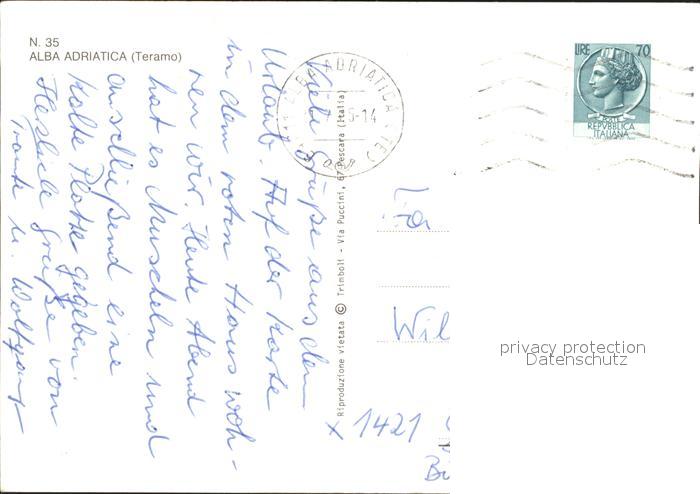 N. 35
ALBA ADRIATICA (Teramo)
Viele Grüße aus dem
Urlaub. Auf der Karte
in dem roten Haus woh-
nen wir. Heute Abend
hat es Muscheln und
anschließend eine
kalte Platte gegeben.
Herzliche Grüße von
Traute u. Wolfgang
Riproduzione vietata © Trimboli - Via Puccini, 67 Pescara (Italia)
ALBA ADRIATICA (TE)
5-14
LIRE 70
REPVBBLICA
ITALIANA
Wil
x 1421
privacy protection
Datenschutz